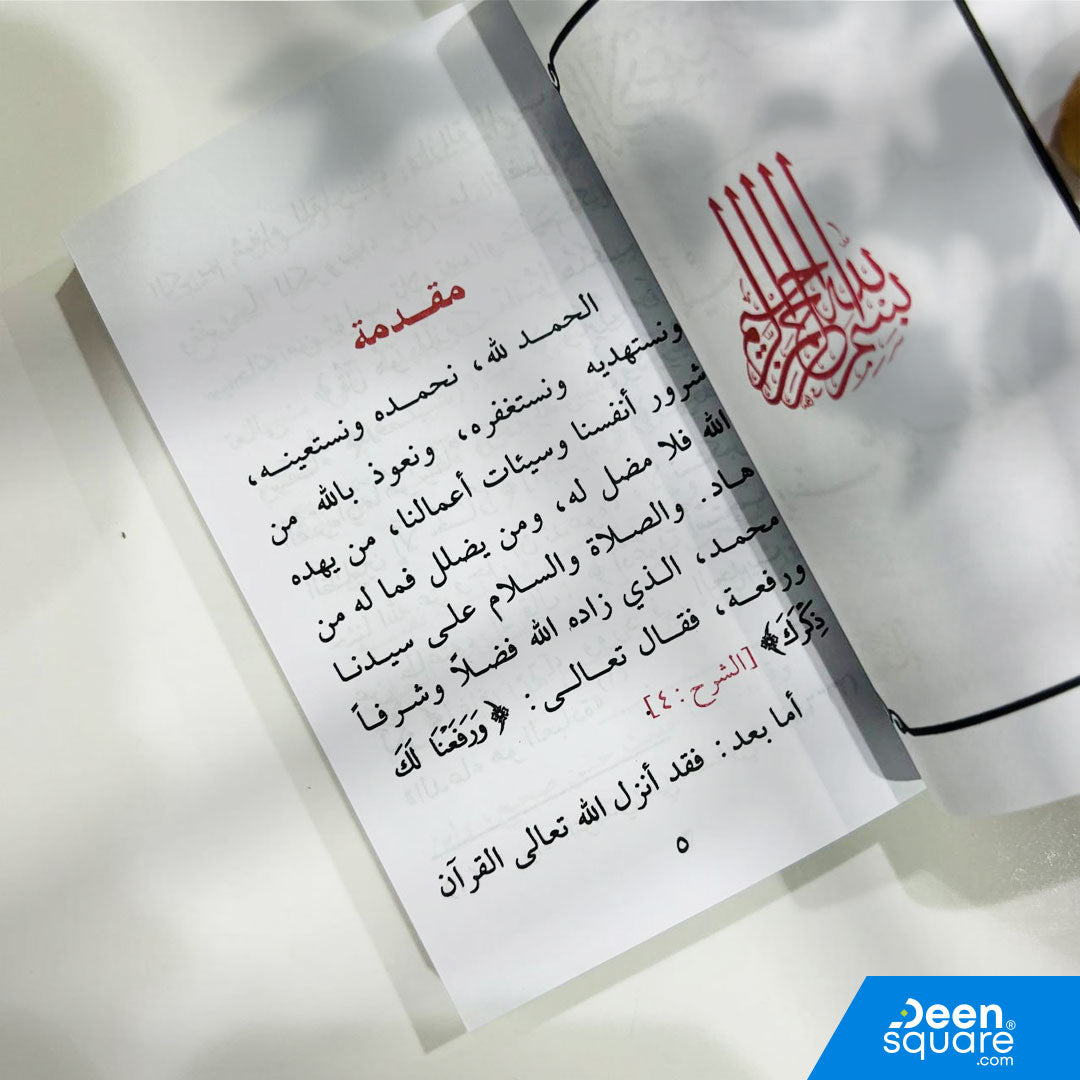 بسم الله الرحمن الرحيم
مقدمة
الحمد لله، نحمده ونستعينه،
ونستهديه ونستغفره، ونعوذ بالله من
شرور أنفسنا وسيئات أعمالنا، من يهده
الله فلا مضل له، ومن يضلل فما له من
هاد. والصلاة والسلام على سيدنا
محمد، الذي زاده الله فضلاً وشرفاً
ورفعة، فقال تعالى: ﴿وَرَفَعْنَا لَكَ
ذِكْرَكَ﴾ [الشرح: ٤].
أما بعد: فقد أنزل الله تعالى القرآن
٥
Deen
square®
.com